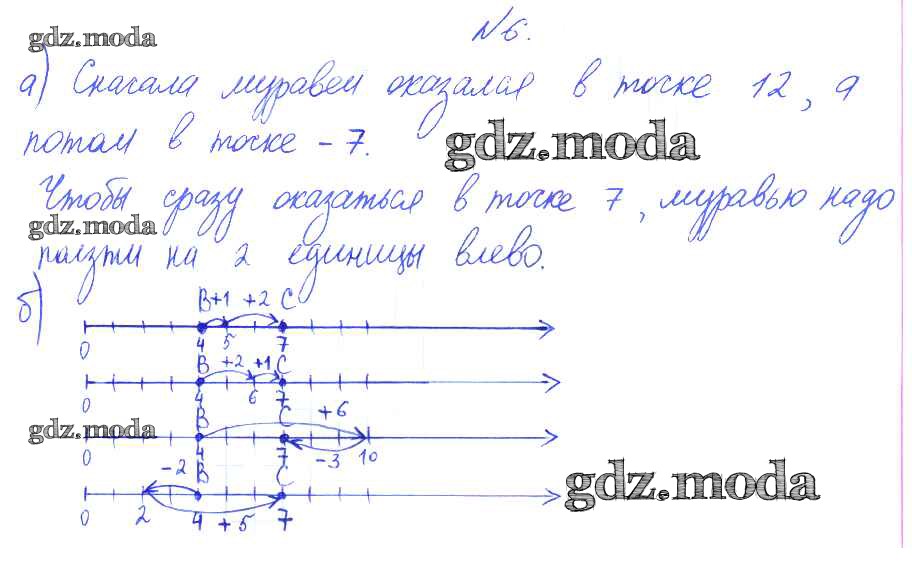 №6.
gdz.moda
а) Сначала муравей оказался в точке 12, а
потом в точке -7.
gdz.moda
Чтобы сразу оказаться в точке 7, муравью надо
gdz.moda
ползти на 2 единицы влево.
б)
B +1 +2 C
0 4 5 7
B +2 +1 C
0 4 6 7
B C +6
gdz.moda
0 4 7 -3 10
-2 B C
gdz.moda
0 2 4 +5 7